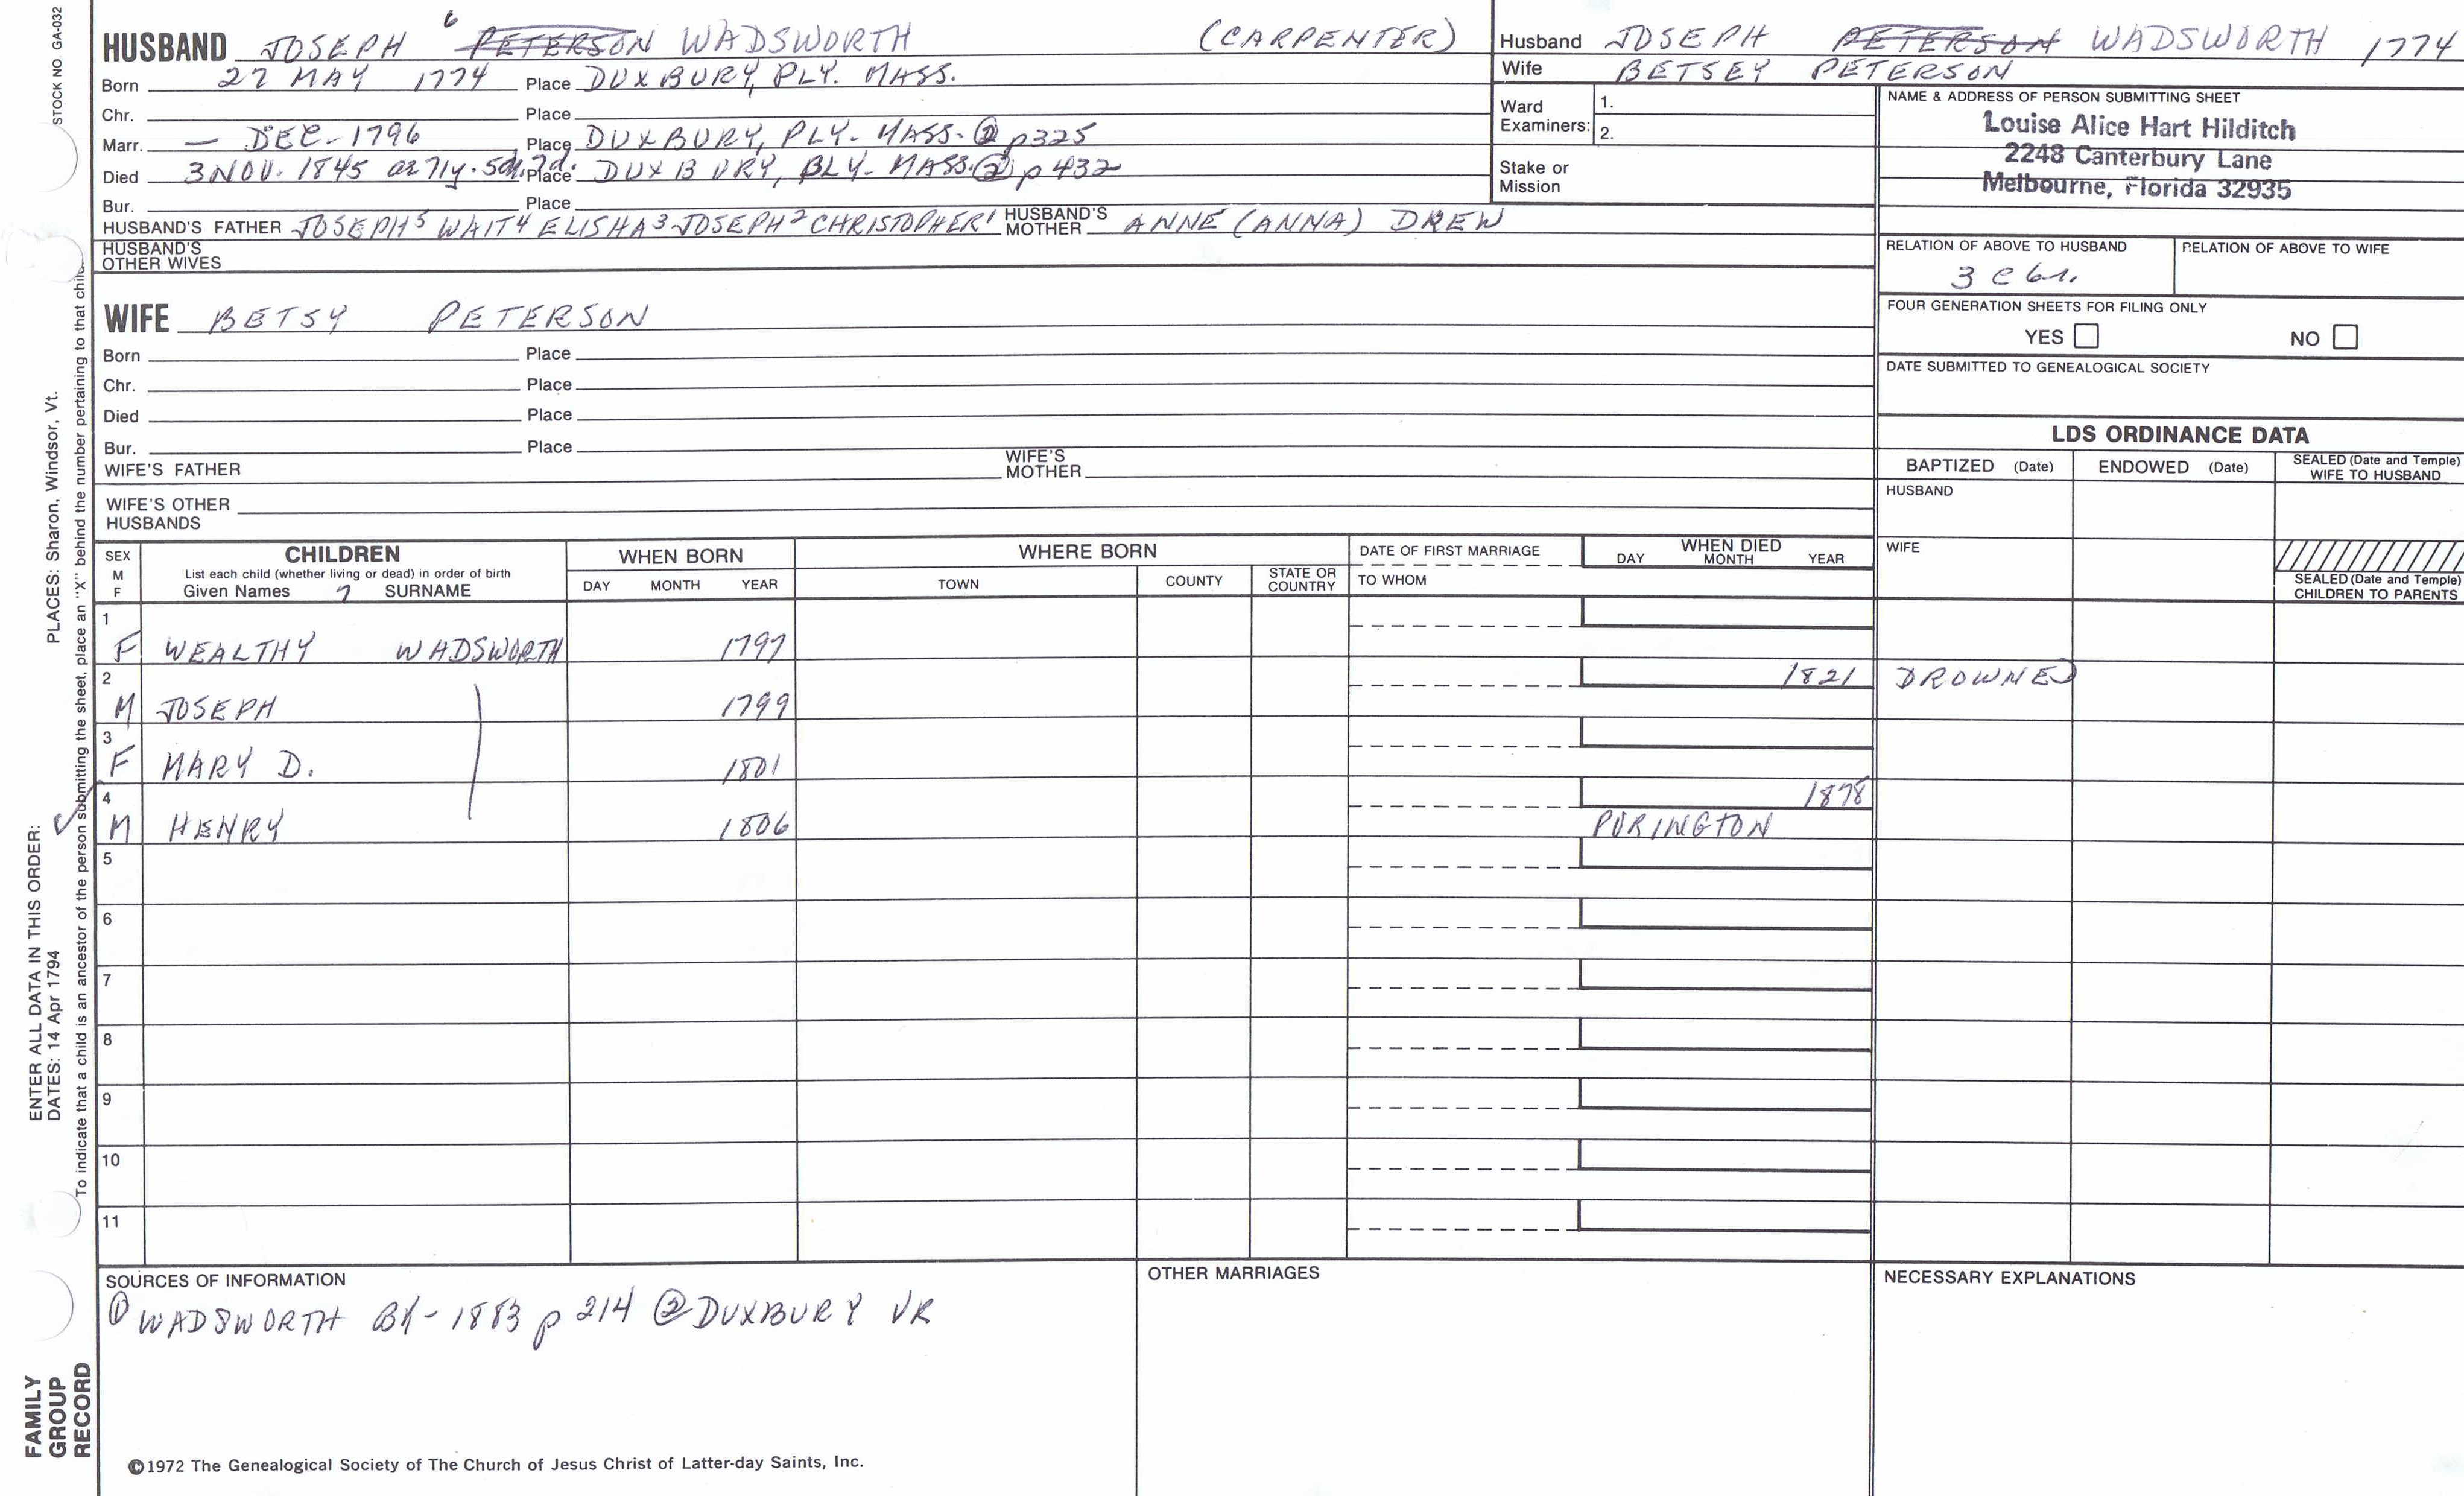 STOCK NO GA-032
HUSBAND JOSEPH 6 PETERSON WADSWORTH (CARPENTER)
Born 27 MAY 1774 Place DUXBURY, PLY. MASS.
Chr. Place
Marr. — DEC- 1796 Place DUXBURY, PLY- MASS. ② p325
Died 3 NOV. 1845 Place DUXBURY, PLY- MASS. ② p 432
Bur. Place
HUSBAND'S FATHER JOSEPH5 WAIT4 ELISHA3 JOSEPH2 CHRISTOPHER1 HUSBAND'S MOTHER ANNE (ANNA) DREW
HUSBAND'S OTHER WIVES
WIFE BETSY PETERSON
Born Place
Chr. Place
Died Place
Bur. Place
WIFE'S FATHER WIFE'S MOTHER
WIFE'S OTHER HUSBANDS
Husband JOSEPH PETERSON WADSWORTH 1774
Wife BETSEY PETERSON
Ward Examiners: 1.
2.
Stake or Mission
NAME & ADDRESS OF PERSON SUBMITTING SHEET
Louise Alice Hart Hilditch
2248 Canterbury Lane
Melbourne, Florida 32935
RELATION OF ABOVE TO HUSBAND RELATION OF ABOVE TO WIFE
FOUR GENERATION SHEETS FOR FILING ONLY
YES NO
DATE SUBMITTED TO GENEALOGICAL SOCIETY
LDS ORDINANCE DATA
BAPTIZED (Date) ENDOWED (Date) SEALED (Date and Temple) WIFE TO HUSBAND
HUSBAND
WIFE
SEALED (Date and Temple) CHILDREN TO PARENTS
SEX M F
CHILDREN
List each child (whether living or dead) in order of birth
Given Names 7 SURNAME
WHEN BORN
DAY MONTH YEAR
WHERE BORN
TOWN COUNTY STATE OR COUNTRY
DATE OF FIRST MARRIAGE
TO WHOM
WHEN DIED
DAY MONTH YEAR
1
F WEALTHY WADSWORTH 1797
2 1821 DROWNED
M JOSEPH 1799
3
F MARY D. 1801
4 1878
M HENRY 1806 PURINGTON
5
6
7
8
9
10
11
SOURCES OF INFORMATION
① WADSWORTH BK- 1883 p 214 ② DUXBURY VR
OTHER MARRIAGES
NECESSARY EXPLANATIONS
©1972 The Genealogical Society of The Church of Jesus Christ of Latter-day Saints, Inc.
FAMILY GROUP RECORD
ENTER ALL DATA IN THIS ORDER:
DATES: 14 Apr 1794 PLACES: Sharon, Windsor, Vt.
To indicate that a child is an ancestor of the person submitting the sheet, place an "X" behind the number pertaining to that child.